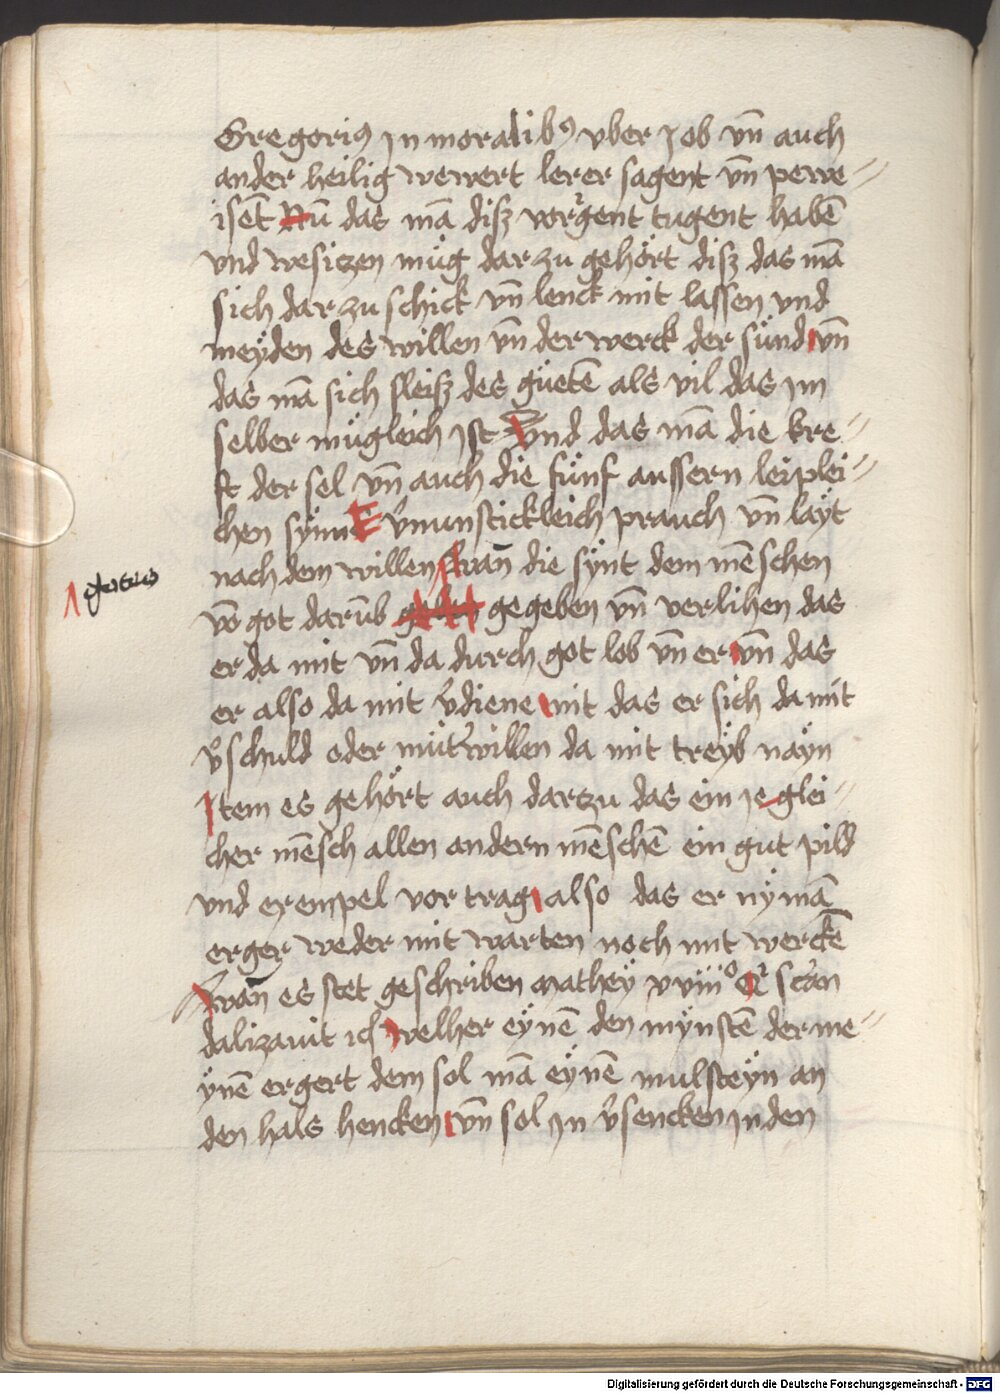 Gregoriꝰ jn moralibꝰ vber job vn̄ auch
ander heilig wewert lerer sagent vn̄ perwe-
isēt Nū das mā disz vorgent tugent habē
vnd wesiczen müg dar zu gehört disz das mā
sich dar zu schick vn̄ lenck mit lassen vnd
meÿden des willen vn̄ der werck der sünd vn̄
das mā sich fleisz des güetē als vil das jm
selber mügleich jst Vnd das mā die kre-
ft der sel vn̄ auch die fünf aussern leiplei-
chen synnE v̾nunstickleich prauch vn̄ layt
nach dem willen wan̄ die synt dem mēschen
gotes
vō got darūb gegeben vn̄ verlihen das
er da mit vn̄ da durch got lob vn̄ er vn̄ das
er also da mit v̾diene nit das er sich da mit
v̾schuld oder mutwillen da mit treyb nayn
Item es gehört auch darczu das ein jeglei-
cher mēsch allen andern mēschē ein gut pild
vnd exempel vor trag also das er nÿmā
erger weder mit warten noch mit werckē
wan̄ es stet geschriben mathey xviiiᵒ Qͥ scan
dalizauit ic̄ welher eÿnē den mÿnstē der me-
ÿnē ergert dem sol mā eÿnē mulsteÿn an
den hals hencken vn̄ sol jn v̾sencken jn den
Digitalisierung gefördert durch die Deutsche Forschungsgemeinschaft - DFG